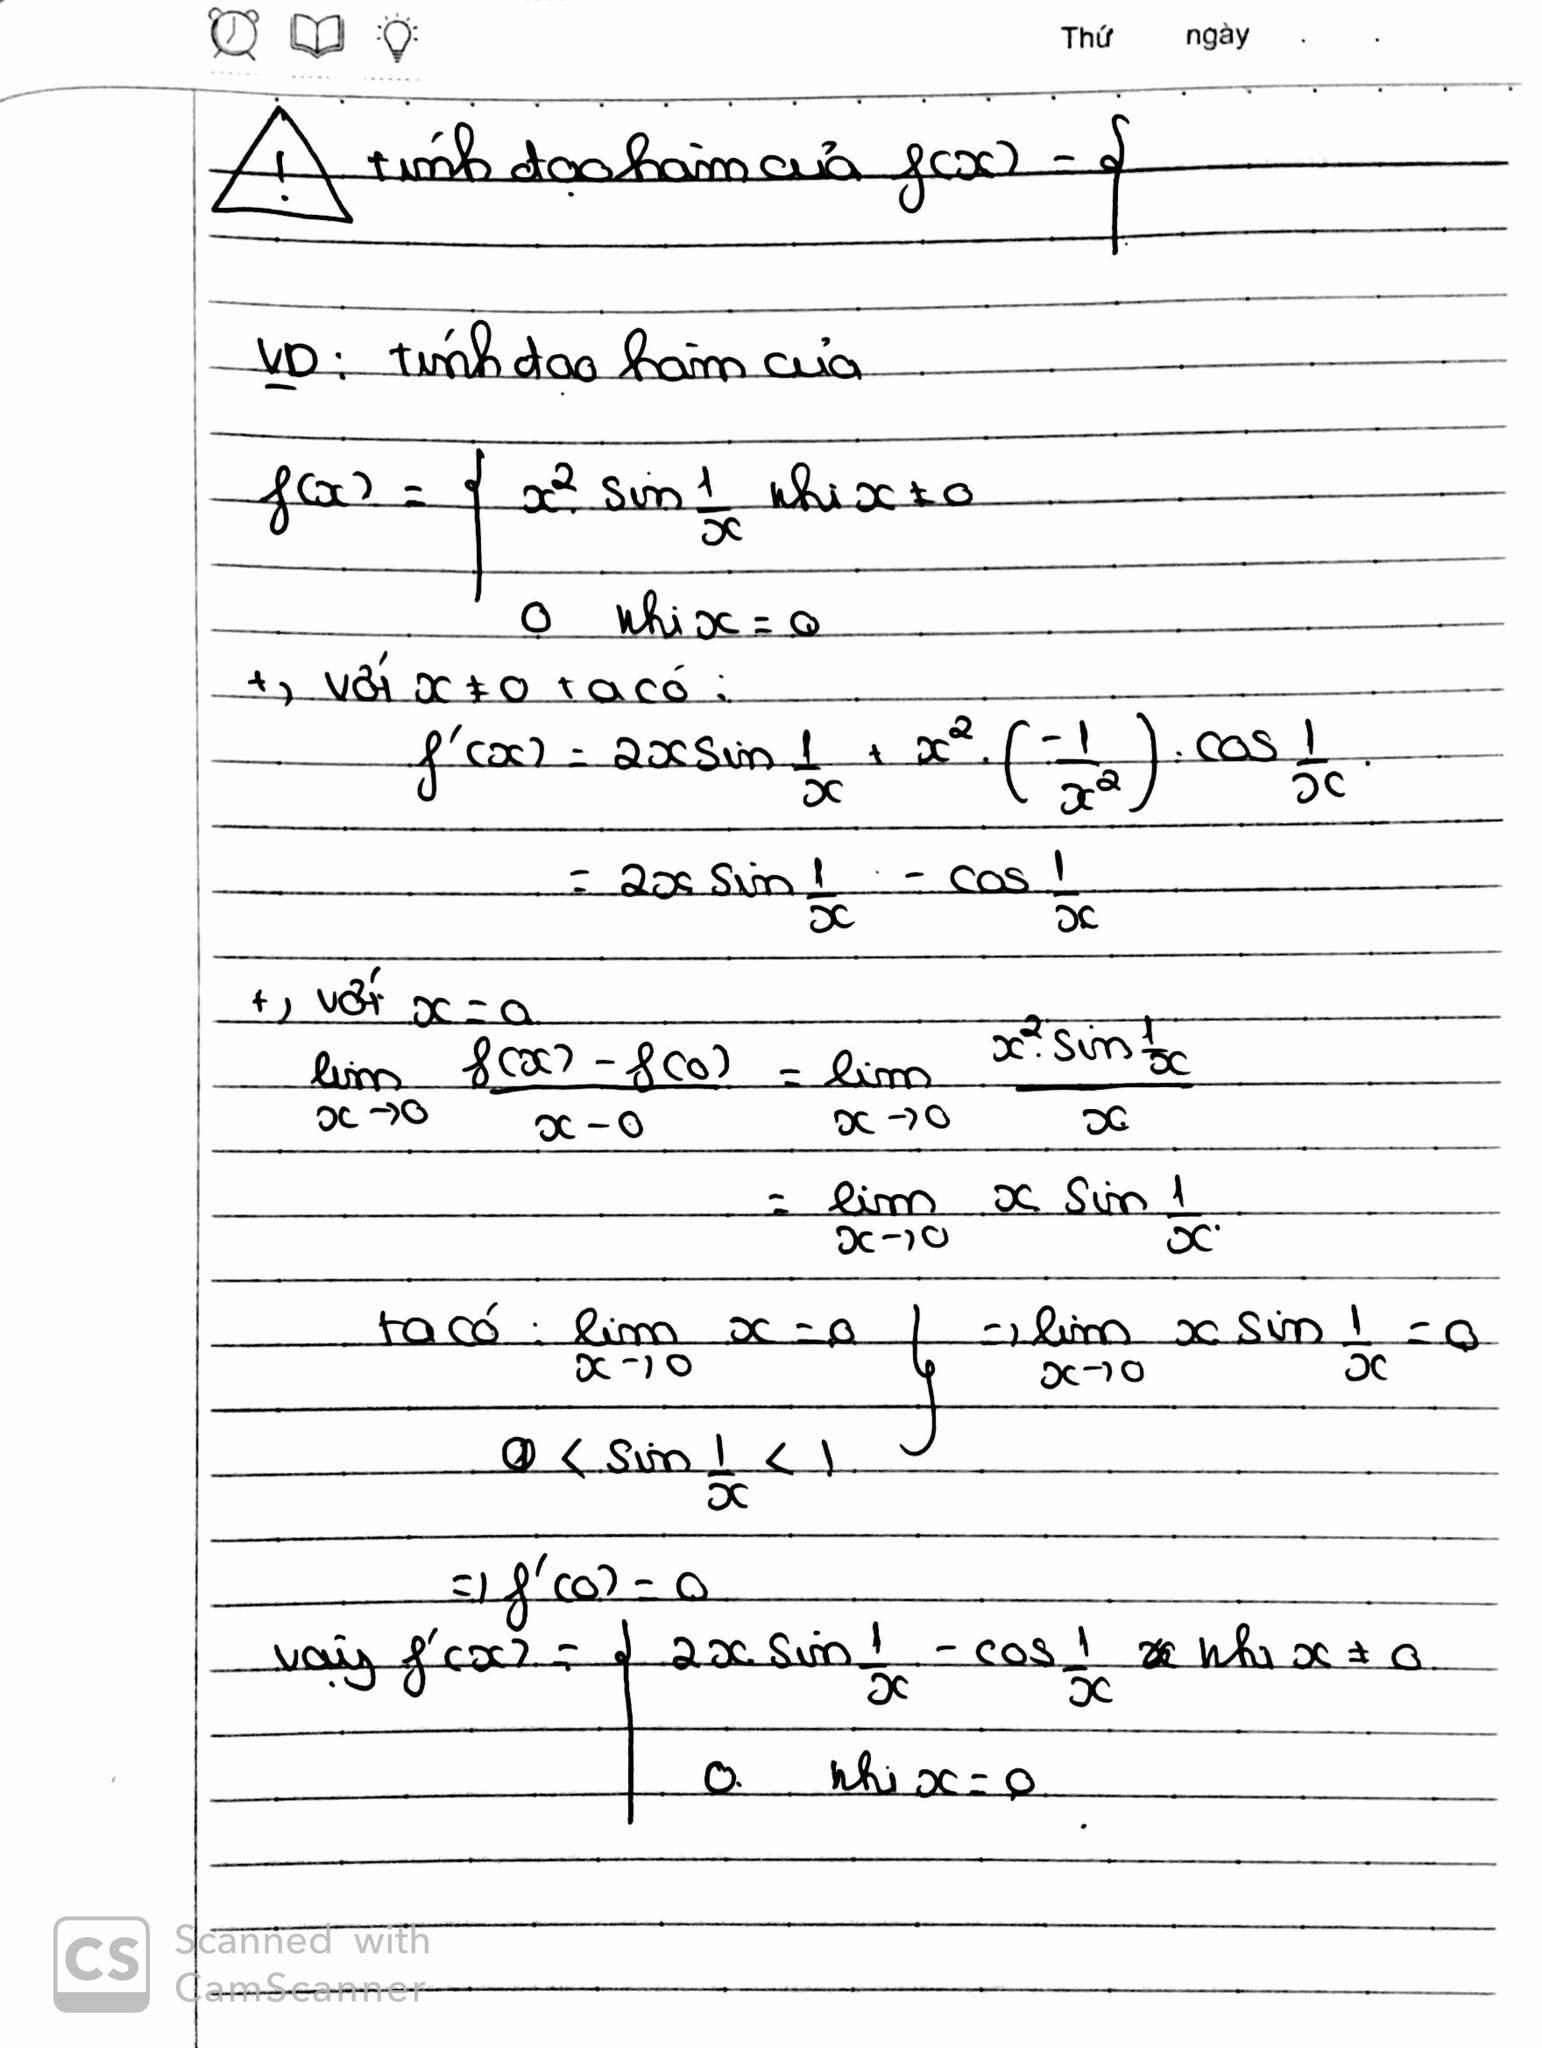 Thứ ngày . .
! tính đạo hàm của f(x) = {
VD: tính đạo hàm của
f(x) = { x². sin 1/x khi x ≠ 0
0 khi x = 0
+, với x ≠ 0 ta có :
f'(x) = 2x sin 1/x + x². (-1/x²). cos 1/x.
= 2x sin 1/x - cos 1/x
+, với x = 0
lim x→0 (f(x) - f(0))/(x - 0) = lim x→0 (x². sin 1/x)/x
= lim x→0 x sin 1/x.
ta có : lim x→0 x = 0 } => lim x→0 x sin 1/x = 0
0 < sin 1/x < 1
=> f'(0) = 0
vậy f'(x) = { 2x sin 1/x - cos 1/x khi x ≠ 0
0. khi x = 0
CS Scanned with
CamScanner